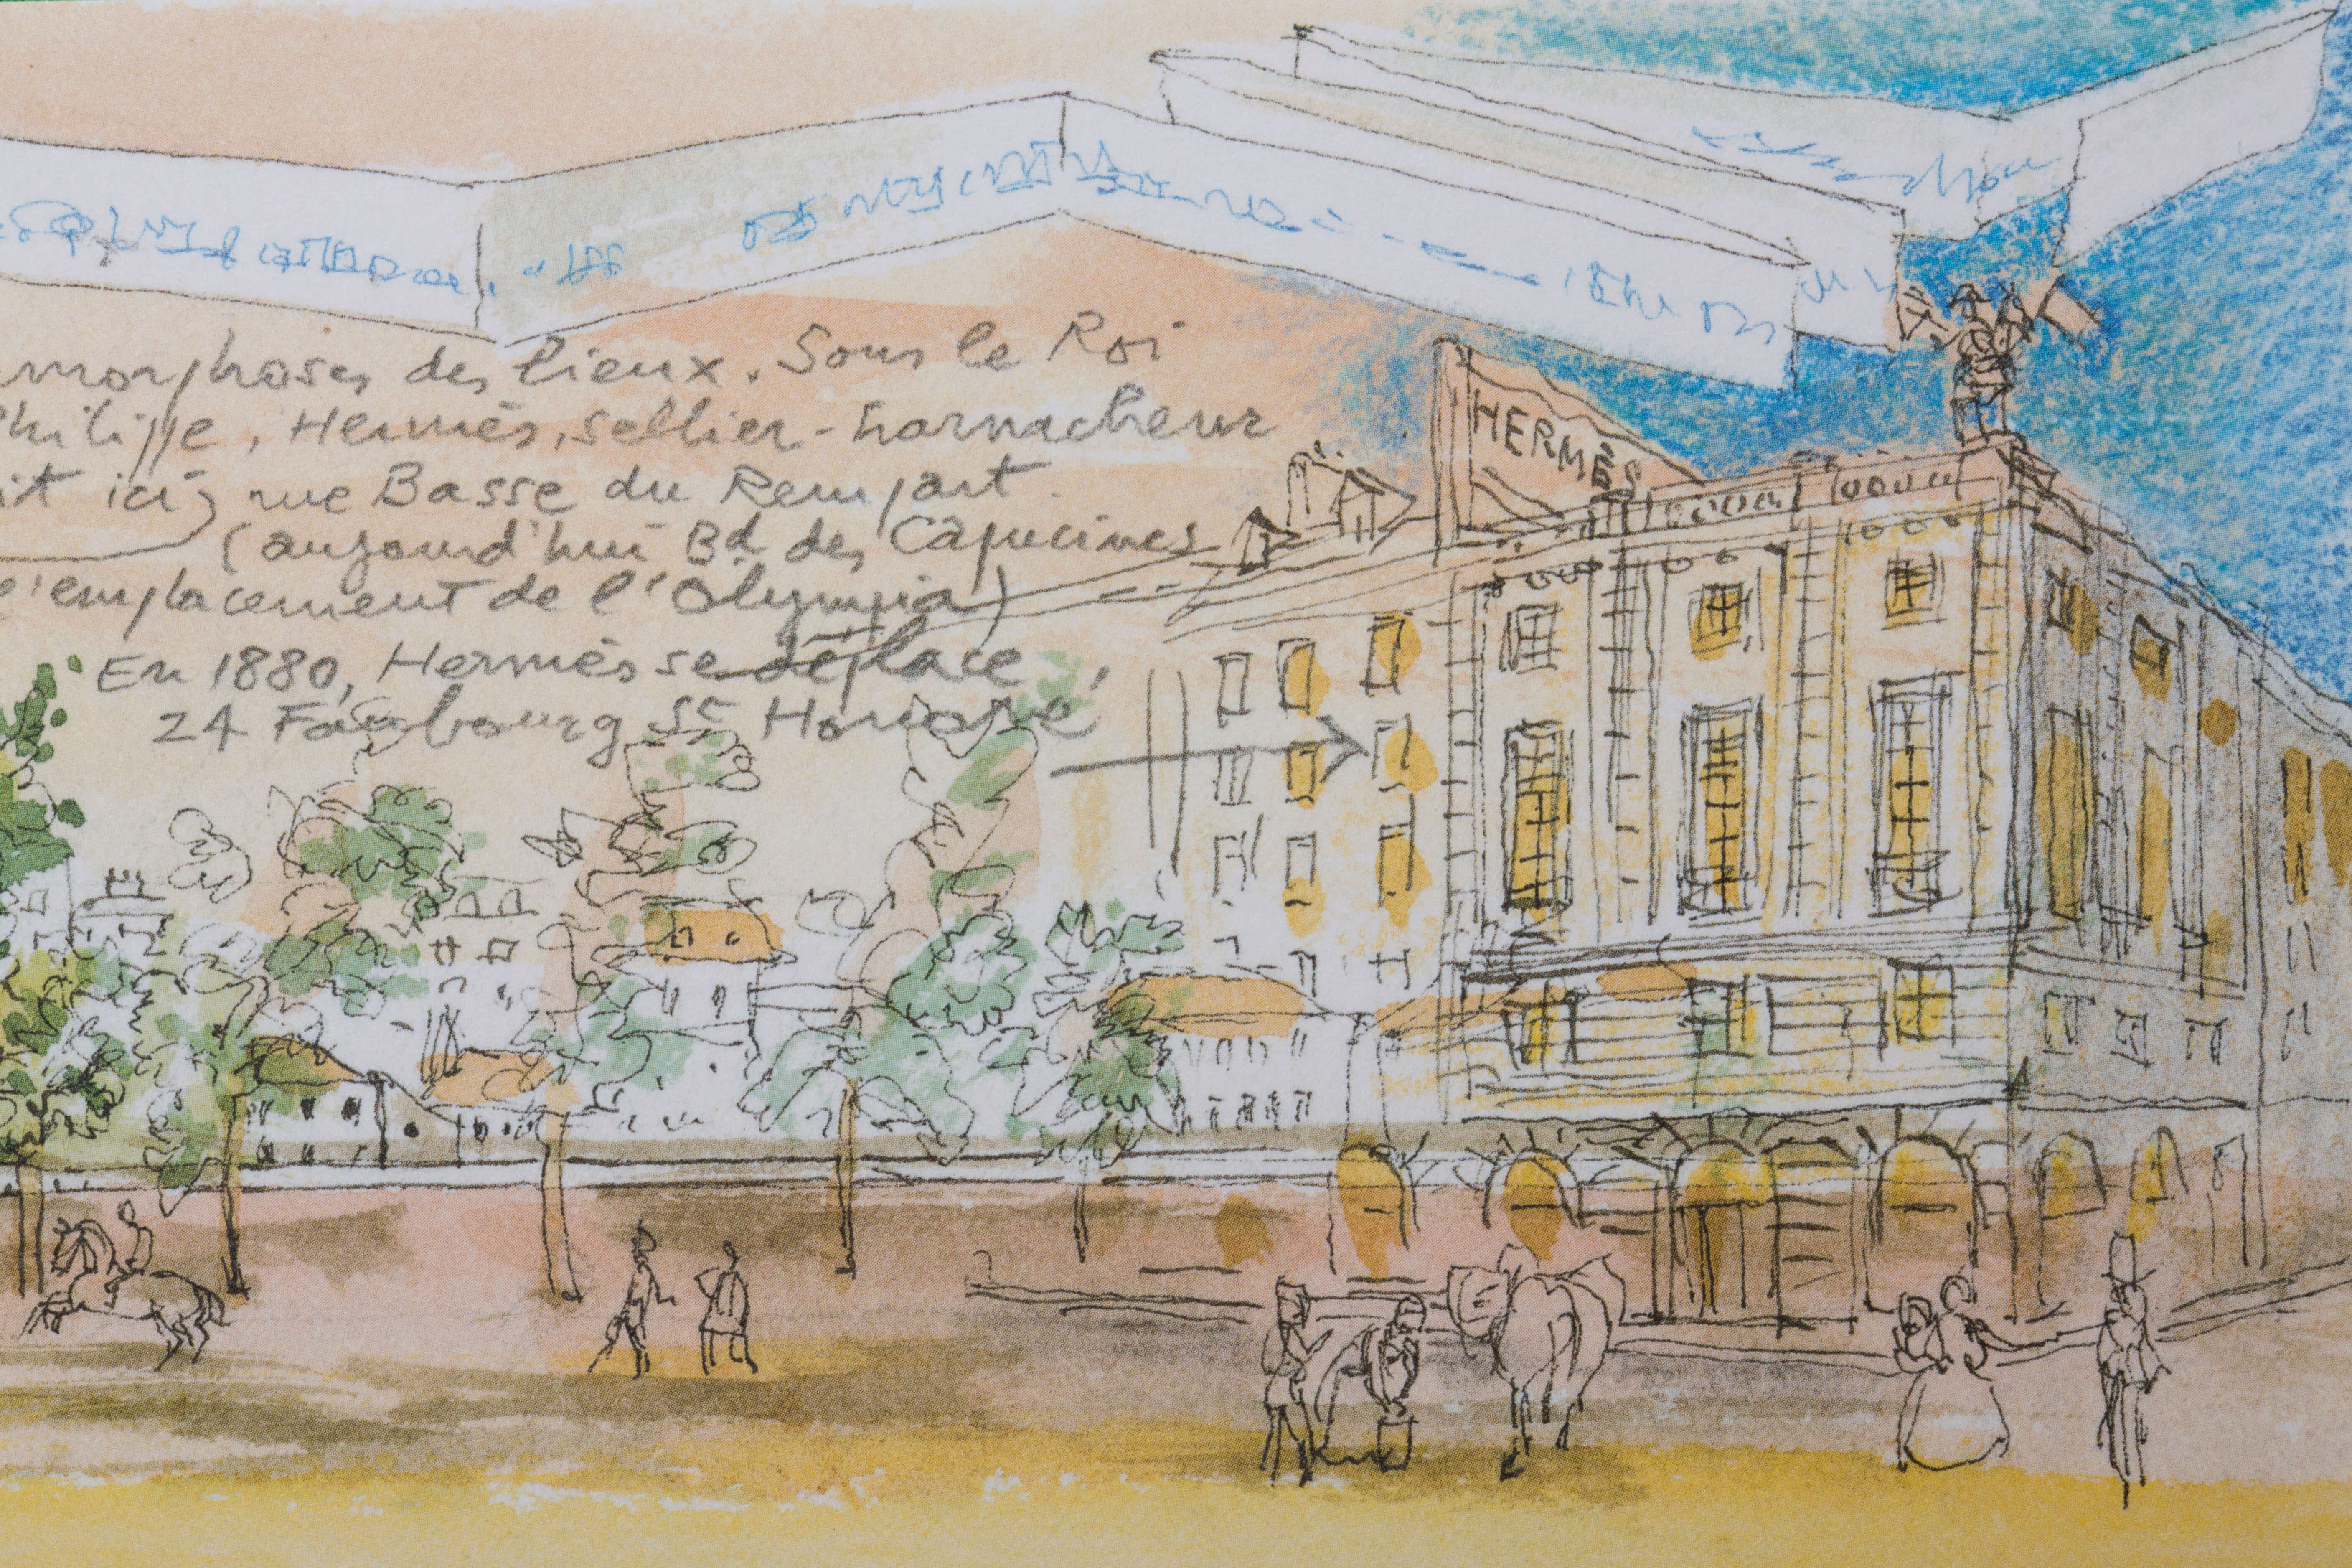 morphoses des lieux. Sous le Roi
Philippe, Hermès, sellier-harnacheur
it ici, rue Basse du Rempart.
(aujourd'hui Bd des Capucines
l'emplacement de l'Olympia)
En 1880, Hermès se déplace,
24 Faubourg St Honoré
HERMÈS